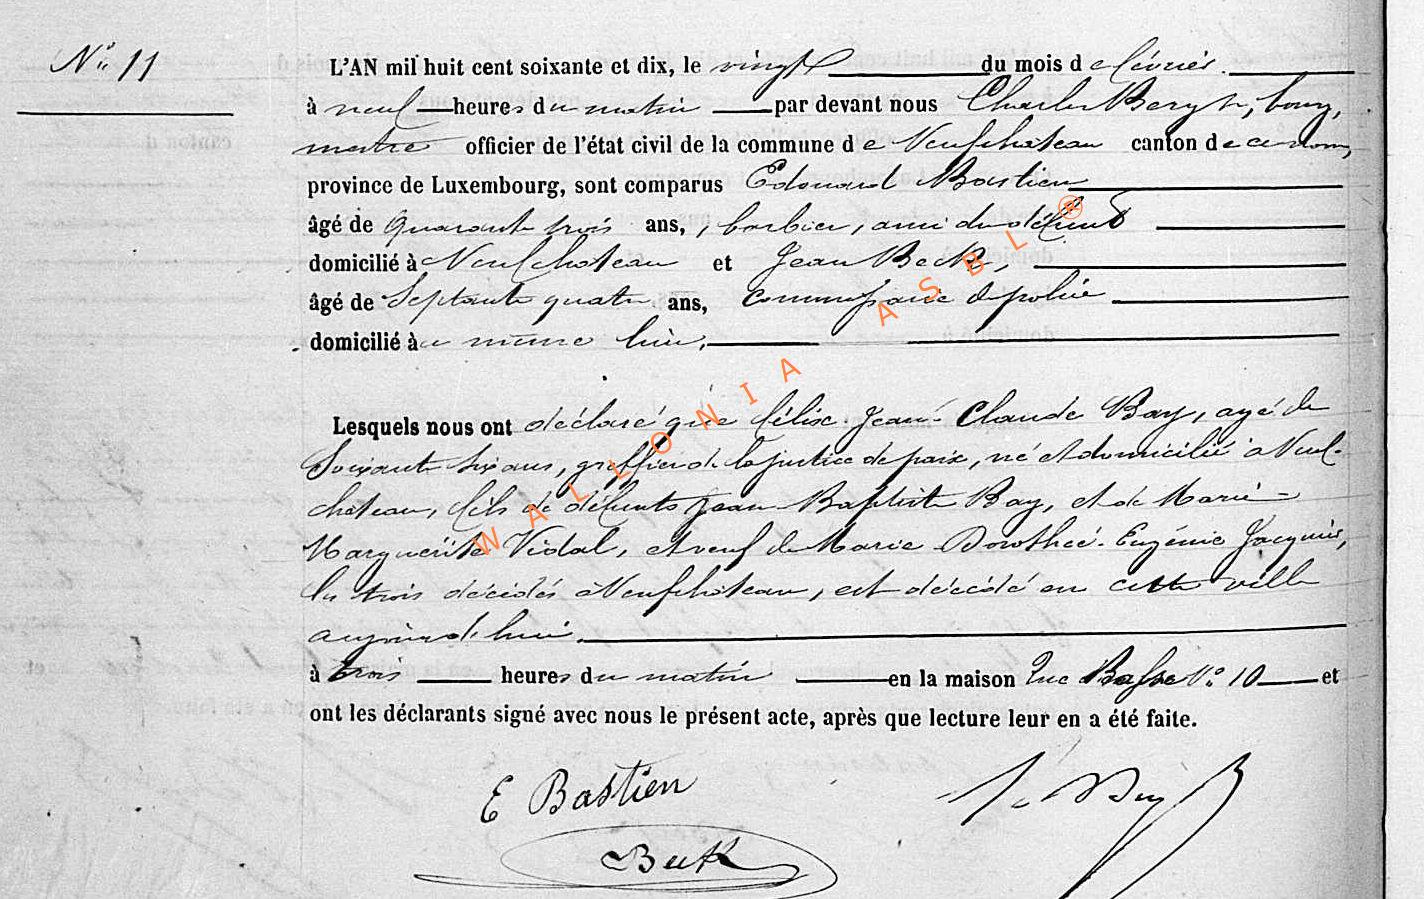 N° 11
L'AN mil huit cent soixante et dix, le vingt du mois de février
à neuf heures du matin par devant nous Charles bourg,
mestre officier de l'état civil de la commune de Neufchâteau canton de ce nom,
province de Luxembourg, sont comparus Edouard Bastien
âgé de quarante trois ans, barbier, ami du défunt
domicilié à Neufchateau et Jean Beck,
âgé de Septante quatre ans, commissaire de police
domicilié à même lieu.
Lesquels nous ont déclaré que félix Jean Claude Bay, agé de
Soixante six ans, greffier de la justice de paix, né et domicilié à Neuf-
chateau, fils de défunts Jean Baptiste Bay, et de Marie
Marguerite Vidal, et veuf de Marie Dorothée Eugénie Jacquier,
les trois décédés à Neufchâteau, est décédé en cette ville
aujourd'hui
à trois heures du matin en la maison rue Basse N° 10 et
ont les déclarants signé avec nous le présent acte, après que lecture leur en a été faite.
E Bastien
Beck
WALLONIA ASBL ®